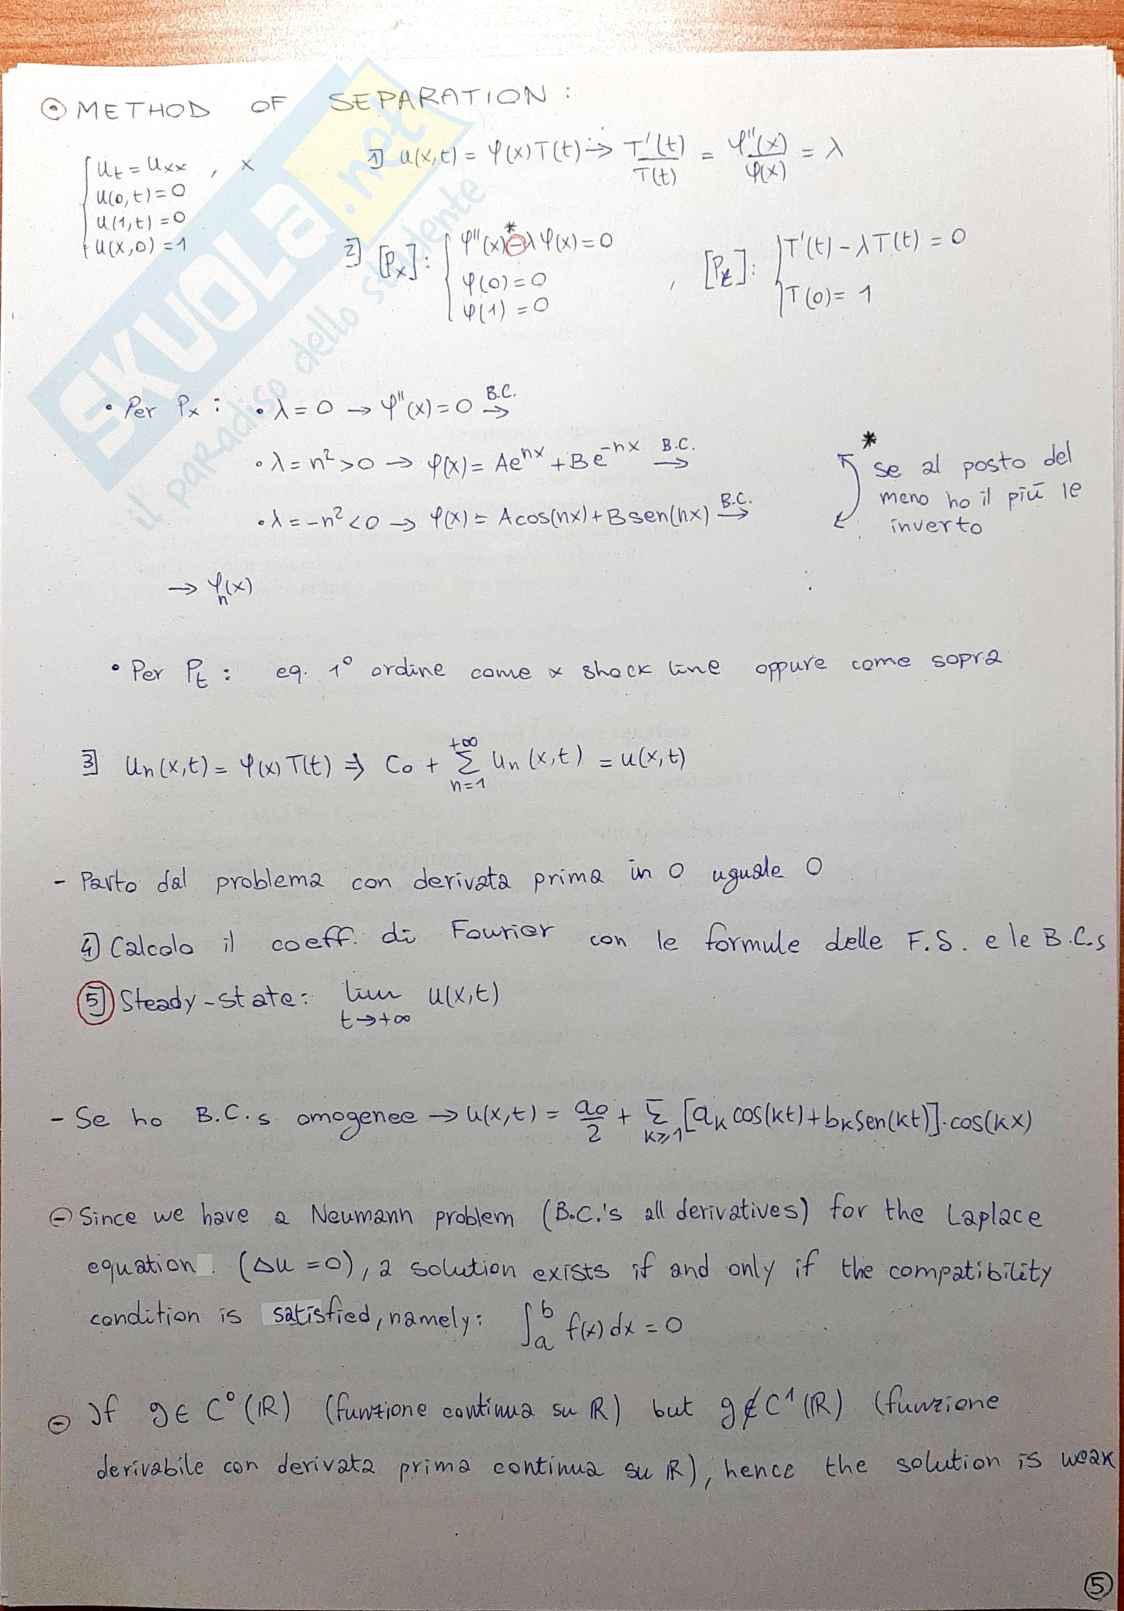 ⊙ METHOD OF SEPARATION:
{ u_t = u_xx , x
u(0,t)=0
u(1,t)=0
u(x,0)=1
1] u(x,t) = φ(x)T(t) → T'(t)/T(t) = φ''(x)/φ(x) = λ
2] [P_x]: { φ''(x) ⊖* λφ(x)=0
φ(0)=0
φ(1)=0
, [P_t]: { T'(t) - λT(t) = 0
T(0)= 1
• Per P_x : • λ = 0 → φ''(x) = 0 B.C. →
• λ = n² > 0 → φ(x) = Ae^{nx} + Be^{-nx} B.C. →
• λ = -n² < 0 → φ(x) = A cos(nx) + B sen(nx) B.C. →
* se al posto del
meno ho il più le
inverto
→ φ_n(x)
• Per P_t : eq. 1° ordine come x shock line oppure come sopra
3] u_n(x,t) = φ(x)T(t) ⇒ C_0 + Σ_{n=1}^{+∞} u_n(x,t) = u(x,t)
- Parto dal problema con derivata prima in 0 uguale 0
4] Calcolo il coeff. di Fourier con le formule delle F.S. e le B.C.s
5] Steady-state: lim_{t→+∞} u(x,t)
- Se ho B.C.s omogenee → u(x,t) = a_0/2 + Σ_{k≥1} [a_k cos(kt) + b_k sen(kt)]·cos(kx)
⊖ Since we have a Neumann problem (B.C.'s all derivatives) for the Laplace
equation (Δu = 0), a solution exists if and only if the compatibility
condition is satisfied, namely: ∫_a^b f(x)dx = 0
⊖ If g ∈ C⁰(ℝ) (funzione continua su ℝ) but g ∉ C¹(ℝ) (funzione
derivabile con derivata prima continua su ℝ), hence the solution is weak
5
SKUOLA.net
il paradiso dello studente